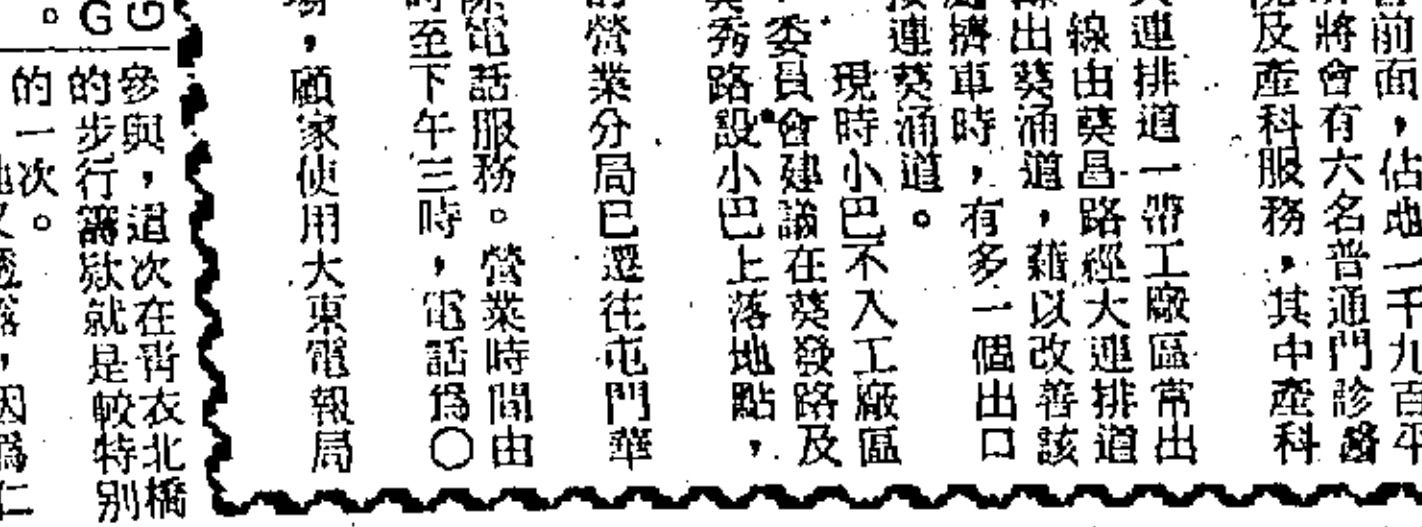 前面，佔地一千九百平
將會有六名普通門診醫
及產科服務，其中產科
連排道一帶工廠區常出
線由葵昌路經大連排道
出葵涌道，藉以改善該
擠車時，有多一個出口
連葵涌道。
現時小巴不入工廠區
委員會建議在葵發路及
秀路設小巴上落地點，
營業分局已遷往屯門華
電話服務。營業時間由
時至下午三時，電話爲〇
，顧家使用大東電報局
參與，這次在靑衣北橋
的步行籌欵就是較特別
的一次。
，因爲仁